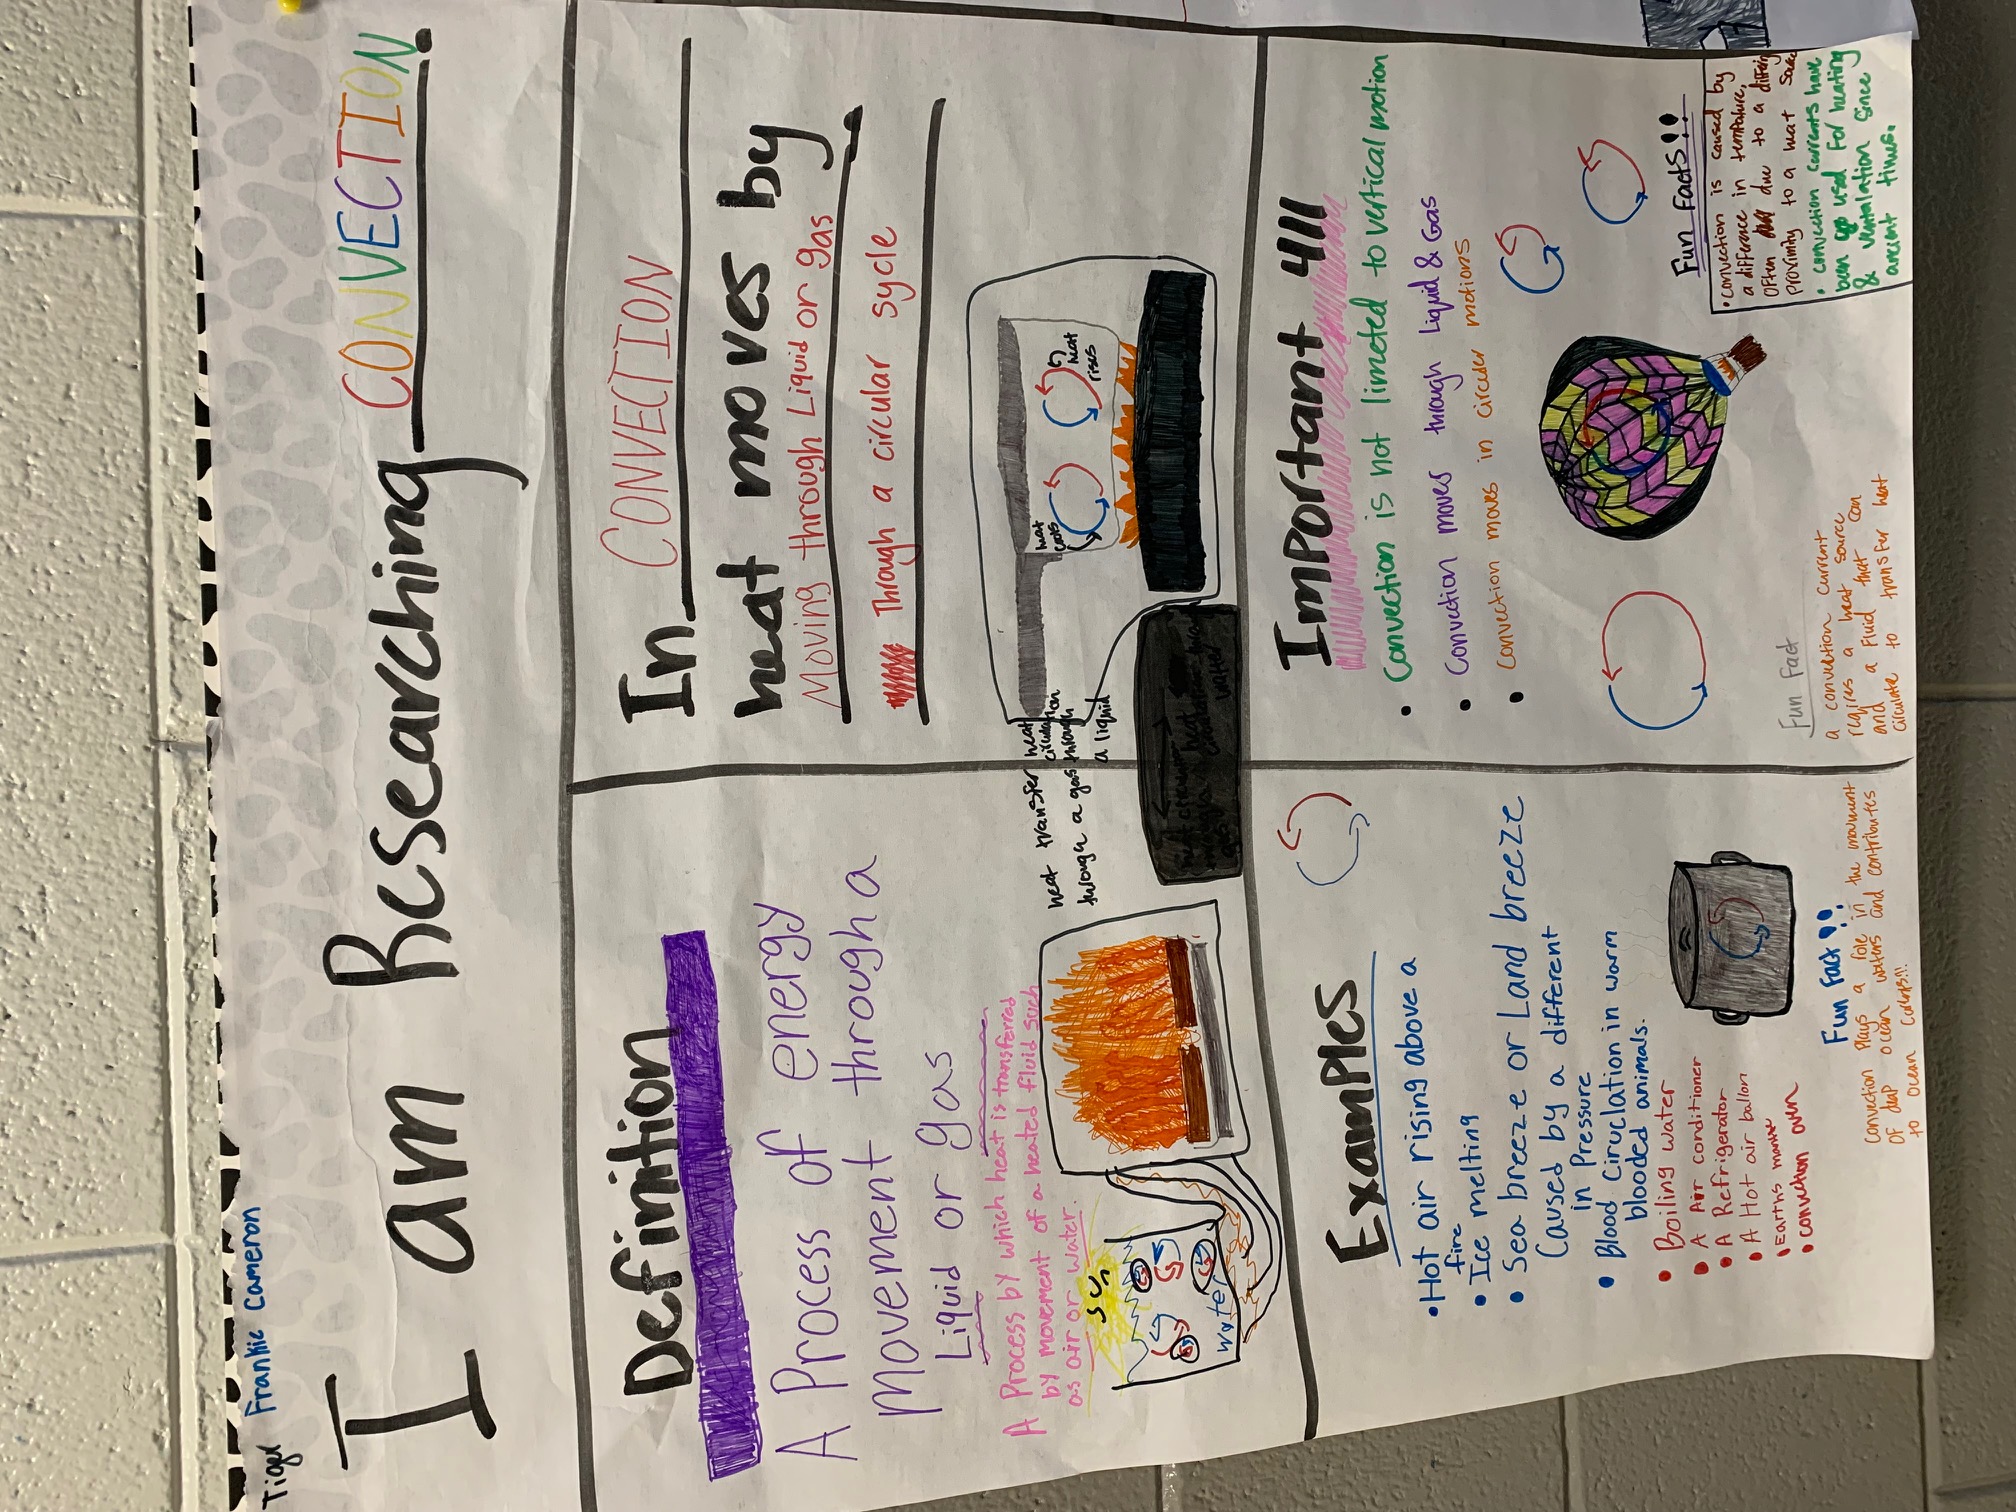 Tiger Frankie Cameron
I am Researching CONVECTION.
Definition
A Process of energy
movement through a
Liquid or gas
A Process by which heat is transferred
by movement of a heated fluid such
as air or water.
sun
water
In CONVECTION
heat moves by
Moving through Liquid or gas
Through a circular sycle
heat
rises
heat transfer heat
circulation
through a gas through
a liquid
Examples
• Hot air rising above a
fire
• Ice melting
• Sea breeze or Land breeze
Caused by a different
in Pressure
• Blood Ciruclation in warm
blooded animals.
• Boiling water
• A Air conditioner
• A Refrigerator
• A Hot air ballon
• Earths mantle
• convection oven
Fun Fact!!
Convection Plays a role in the movment
of deap ocean waters and contributes
to ocean
Important 411
• Convection is not limeted to vertical motion
• Convection moves through Liquid & Gas
• Convection moves in circuler motions
Fun Fact
a convection current
reqires a heat source
and a Fluid that can
circulate to transfer heat
Fun Facts!!!
• Convection is caused by
a difference in tempature,
often due to a differing
proximity to a heat
• convection currents have
been used for heating
& ventalation since
ancent times.